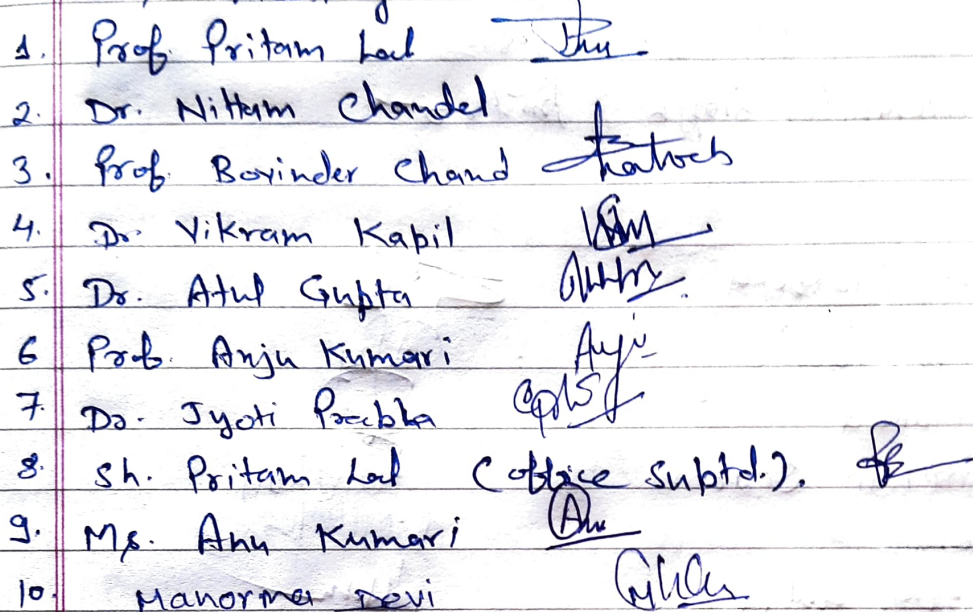 1. Prof. Pritam Lal
2. Dr. Nittam Chandel
3. Prof. Bovinder Chand Katoch
4. Dr. Vikram Kapil
5. Dr. Atul Gupta
6 Prof. Anju Kumari Anju
7. Dr. Jyoti Prabha
8. Sh. Pritam Lal (Office Suptd.).
9. Ms. Anu Kumari Anu
10. Manorma Devi